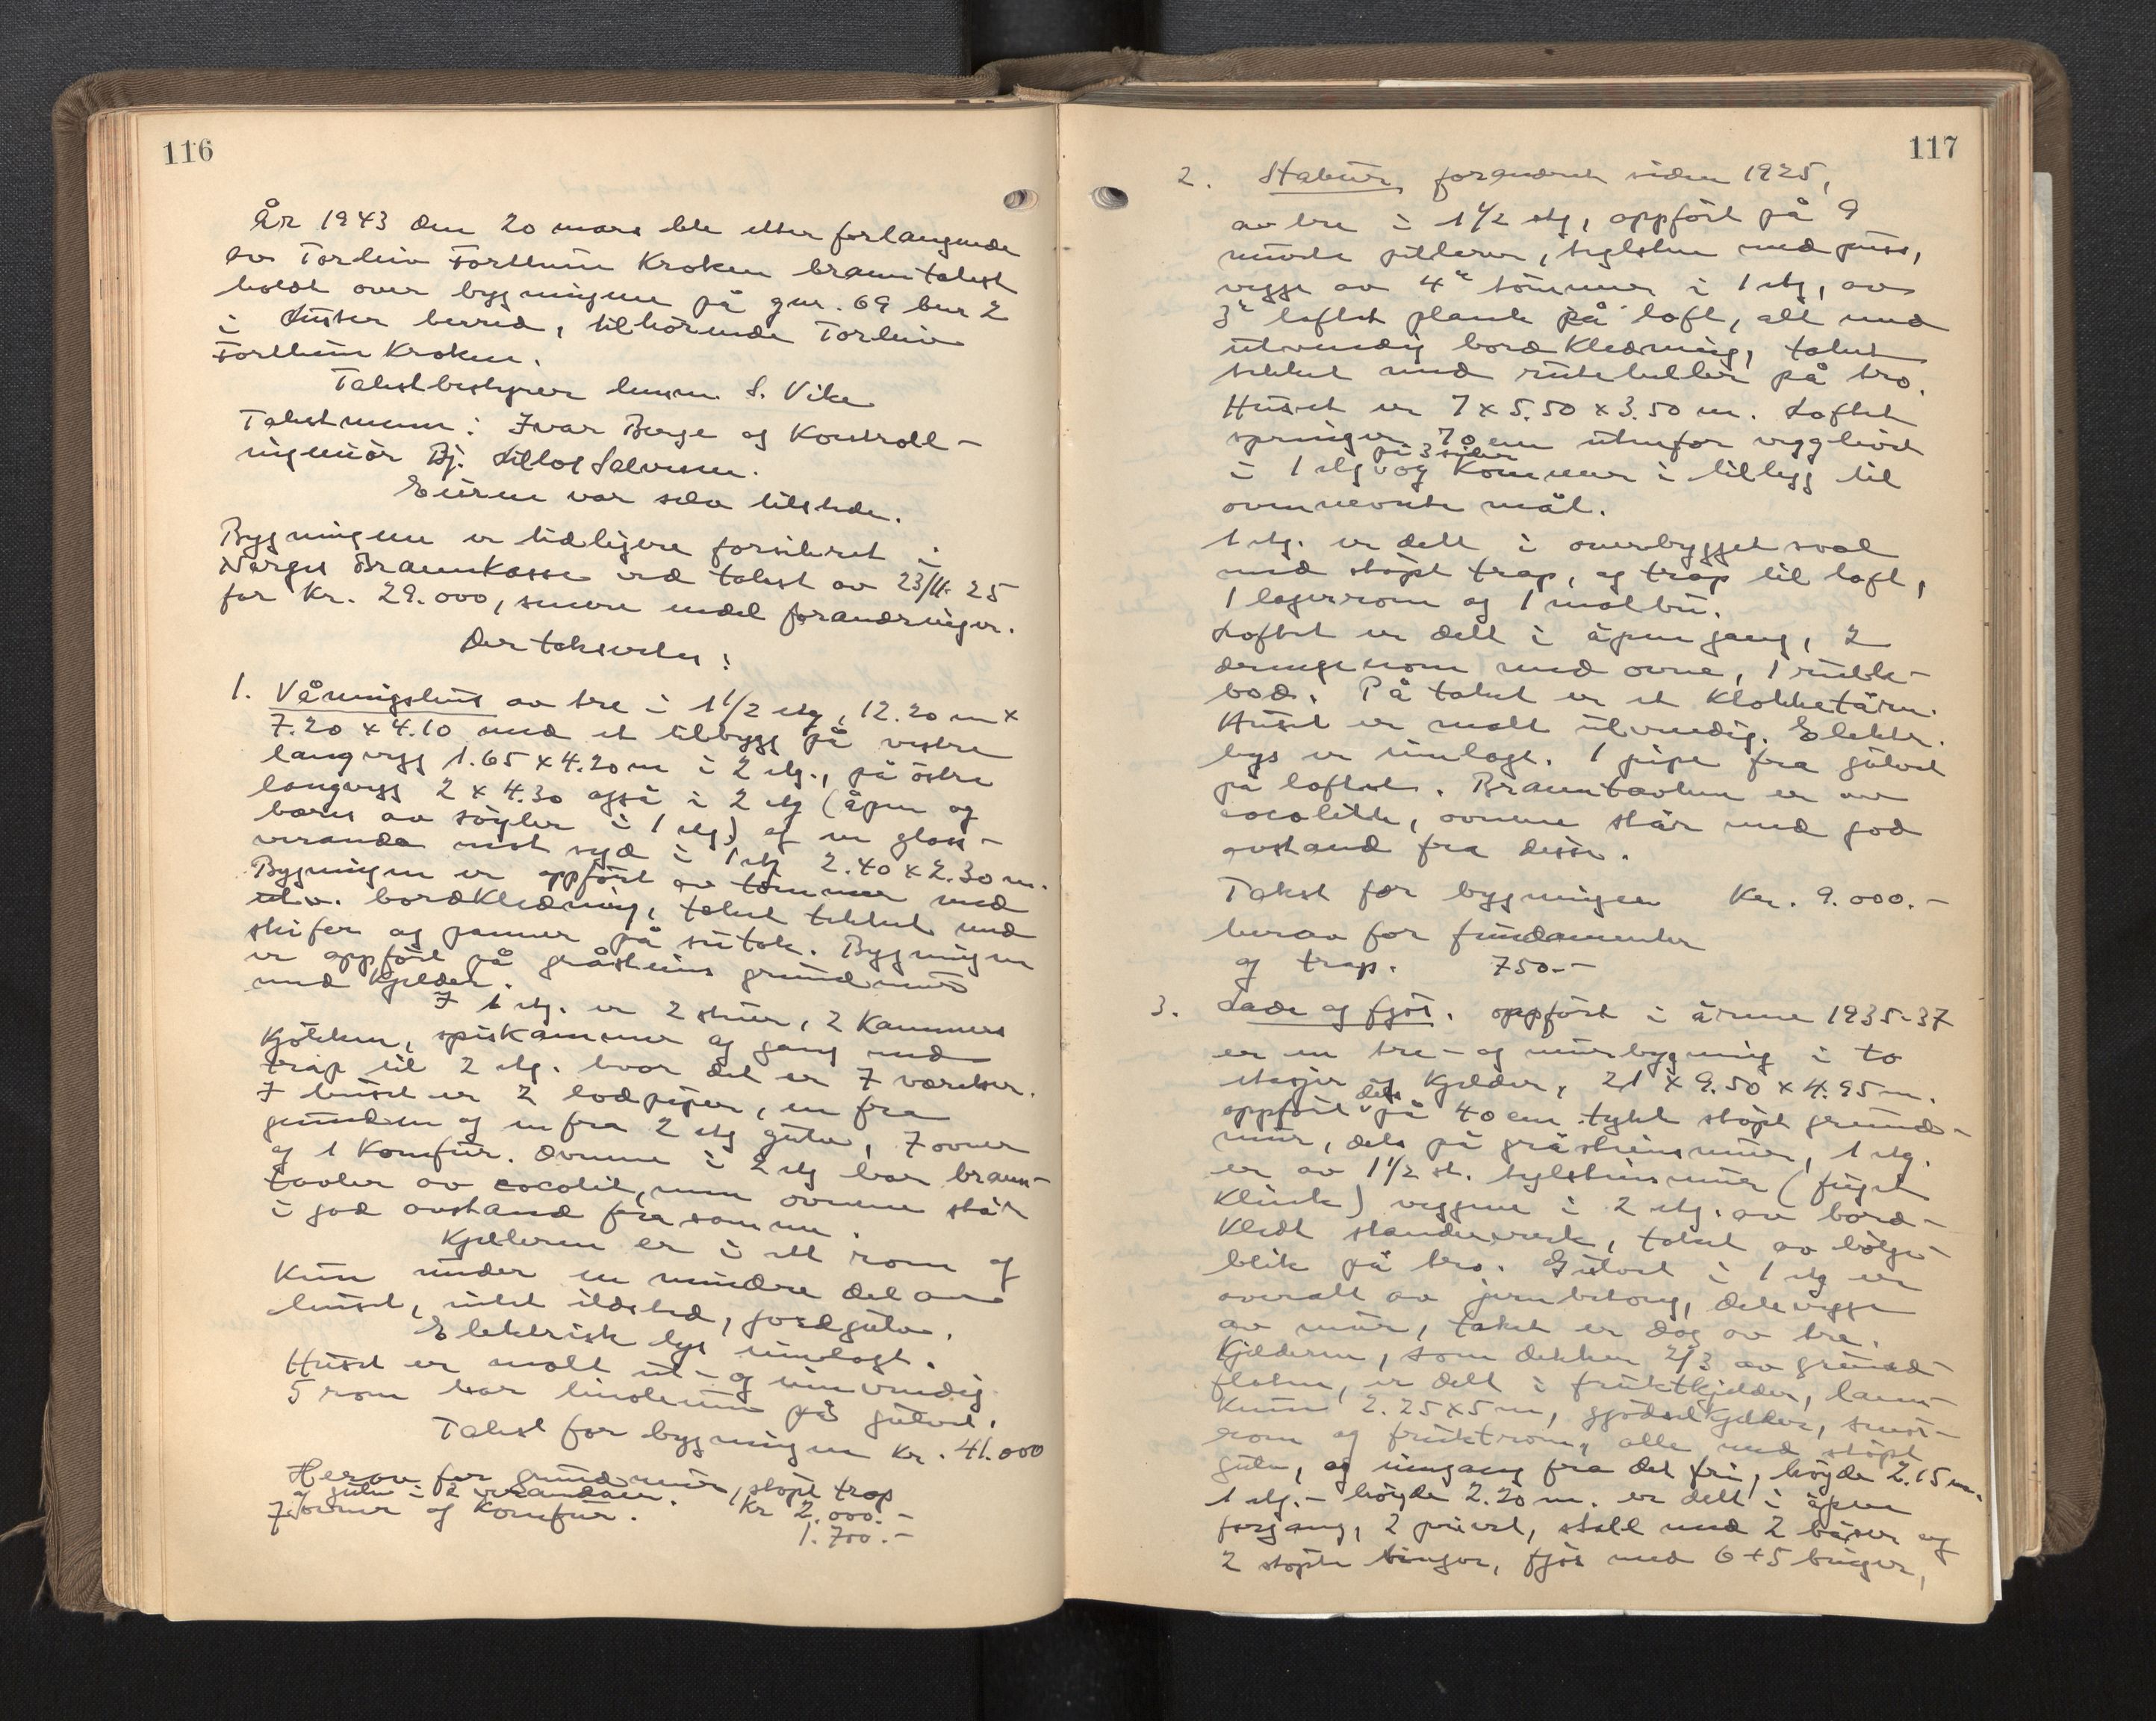 116
År 1943 den 20 mars ble etter forlangende
av Torleiv Fortheim Kroken branntakst
holdt over bygningene på gnr. 69 bnr 2
i Luster herred, tilhörende Torleiv
Fortheim Kroken.
Takstbestyrer lensm. S. Vike
Takstmenn: Ivar Berge og Kontroll-
ingeniör Bj. Lillos Salvesen.
Eieren var selv tilstede.
Bygningene er tidligere forsikret i
Norges Brannkasse ved takst av 23/4-25
for Kr. 29.000, senere endel forandringer.
Der takseretes:
1. Våningshus av tre i 1 1/2 etg, 12.20 m x
7.20 x 4.10 med et tilbygg på vestre
langvegg 1.65 x 4.20 m i 2 etg., på östre
langvegg 2 x 4.30 også i 2 etg (åpen og
bæres av söyler i 1 etg) og en glass-
veranda mot syd i 1 etg 2.40 x 2.30 m.
Bygningen er oppfört av tömmer med
utv. bordkledning, taket tekket med
skifer og panner på sutak. Bygningen
er oppfört på gråsteins grundmur
med kjelder.
I 1 etg. er 2 stuer, 2 kammers
kjökken, spiskammer og gang med
trap til 2 etg. hvor det er 7 værelser.
I huset er 2 lodpiper, en fra
grunden og en fra 2 etg gulv, 7 ovner
og 1 Komfur. Ovnene i 2 etg har brann-
tavler av cocolit, men ovnene står
i god avstand fra samme.
Kjelleren er i ett rom og
kun under en mindre del av
huset, intet ildsted, jordgulv.
Elektrisk lys innlagt.
Huset er malt ut- og innvendig
5 rom har linoleum på gulvet.
Takst for bygningen Kr. 41.000
Herav for grundmur, stöpt trap
og gulv i 2 verandaer. Kr 2.000.-
7 ovner og komfur. 1.700.-
117
2. Stabur, forandret siden 1925,
av tre i 1 1/2 etg, oppfört på 9
murte pillerer, teglsten med puss,
vegge av 4" tömmer i 1 etg, av
3" laftet plank på loft, alt med
utvendig bordkledning, taket
tekket med ruteheller på tro.
Huset er 7 x 5.50 x 3.50 m. Loftet
springer 70 cm utenfor vegglivet
på 3 sider
i 1 etg og kommer i tillegg til
ovennevnte mål.
1 etg. er delt i overbygget sval
med stöpt trap, og trap til loft,
1 lagerrom og 1 matbu.
Loftet er delt i åpen gang, 2
drengerom med ovne, 1 rulle-
bod. På taket er et klokketårn.
Huset er malt utvendig. Elektr.
lys er innlagt. 1 pipe fra gulvet
på loftet. Branntavlen er av
cocolitt, ovnene står med god
avstand fra disse.
Takst for bygningen Kr. 9.000.-
herav for fundamenter
og trap. 750.-
3. Lade og fjös. oppfört i årene 1935-37
er en tre- og murbygning i to
etasjer og kjelder, 21 x 9.50 x 4.95 m.
dels
oppfört på 40 cm tykt stöpt grund-
mur, dels på gråsteinsmur, 1 etg.
er av 1 1/2 st. teglsteinsmur (fuget
klink) veggene i 2 etg. av bord-
kledt stenderverk, taket av bölge-
blik på tro. Gulvet i 1 etg er
overalt av jernbetong, delevegge
av mur, taket er dog av tre.
Kjelderen, som dekker 2/3 av grund-
flaten, er delt i fruktkjelder,
2.25 x 5 m, gjödselkjelder,
rom og fruktrom, alle med stöpt
gulv, og inngang fra det fri, höyde 2.15 m.
1 etg.- höyde 2.20 m. er delt i åpen
forgang, 2 privet, stall med 2 båser og
2 stöpte binger, fjös med 6 + 5 binger,